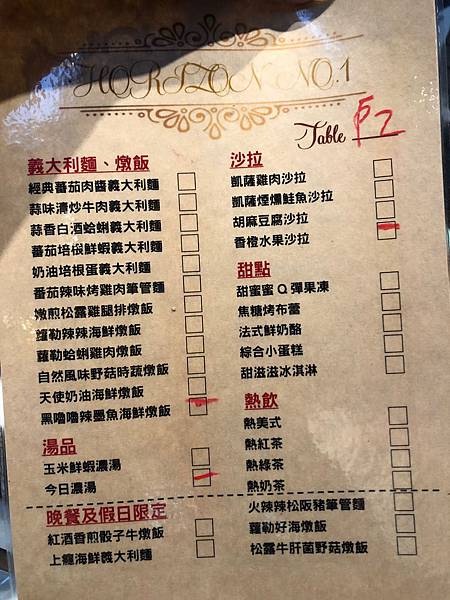 HORIZON NO.1
Table
義大利麵、燉飯
經典蕃茄肉醬義大利麵
蒜味清炒牛肉義大利麵
蒜香白酒蛤蜊義大利麵
蕃茄培根鮮蝦義大利麵
奶油培根蛋義大利麵
番茄辣味烤雞肉筆管麵
嫩煎松露雞腿排燉飯
蘿勒辣辣海鮮燉飯
蘿勒蛤蜊雞肉燉飯
自然風味野菇時蔬燉飯
天使奶油海鮮燉飯
黑嚕嚕辣墨魚海鮮燉飯
湯品
玉米鮮蝦濃湯
今日濃湯
沙拉
凱薩雞肉沙拉
凱薩煙燻鮭魚沙拉
胡麻豆腐沙拉
香橙水果沙拉
甜點
甜蜜蜜Q彈果凍
焦糖烤布蕾
法式鮮奶酪
綜合小蛋糕
甜滋滋冰淇淋
熱飲
熱美式
熱紅茶
熱綠茶
熱奶茶
晚餐及假日限定
紅酒香煎骰子牛燉飯
上癮海鮮義大利麵
火辣辣松阪豬筆管麵
蘿勒好海燉飯
松露牛肝菌野菇燉飯